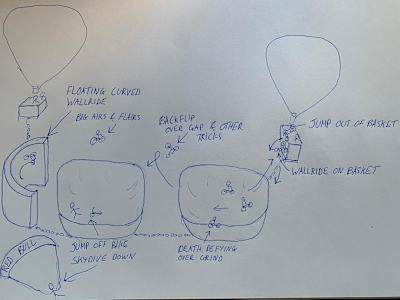 FLOATING CURVED
WALLRIDE
BIG AIRS & FLAIRS
BACKFLIP
OVER GAP & OTHER
TRICKS
JUMP OUT OF BASKET
WALLRIDE ON BASKET
RED BULL
JUMP OFF BIKE
SKYDIVE DOWN
DEATH DEFYING
OVER GRIND